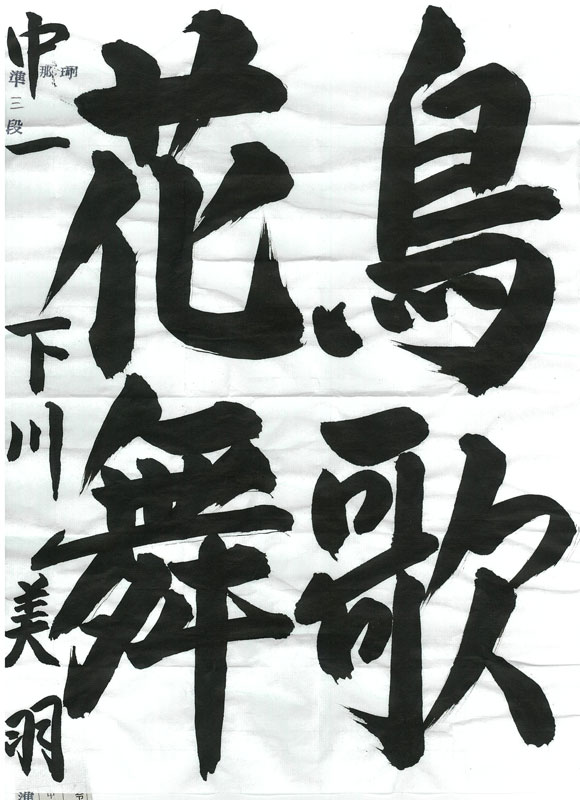 鳥歌
花舞
中一 下川美羽
準三段
準